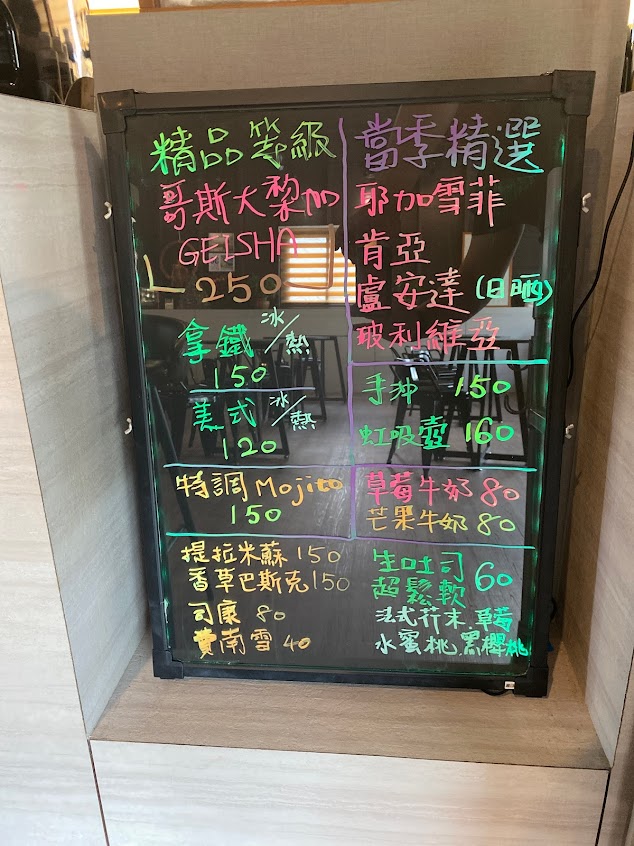 精品等級
哥斯大黎加
GEISHA
250
拿鐵 冰/熱
150
美式 冰/熱
120
特調 Mojito
150
提拉米蘇 150
香草巴斯克 150
司康 80
費南雪 40
當季精選
耶加雪菲
肯亞
盧安達(日晒)
玻利維亞
手沖 150
虹吸壺 160
草莓牛奶 80
芒果牛奶 80
生吐司
超鬆軟 60
法式芥末.草莓
水蜜桃.黑櫻桃